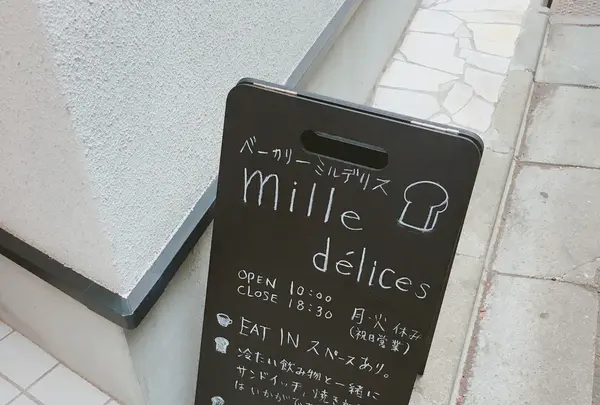 ベーカリーミルデリス
mille
délices
OPEN 10:00
CLOSE 18:30
月・火 休み
(祝日営業)
EAT IN スペースあり。
冷たい飲み物と一緒に
サンドイッチ、焼き
はいかがで